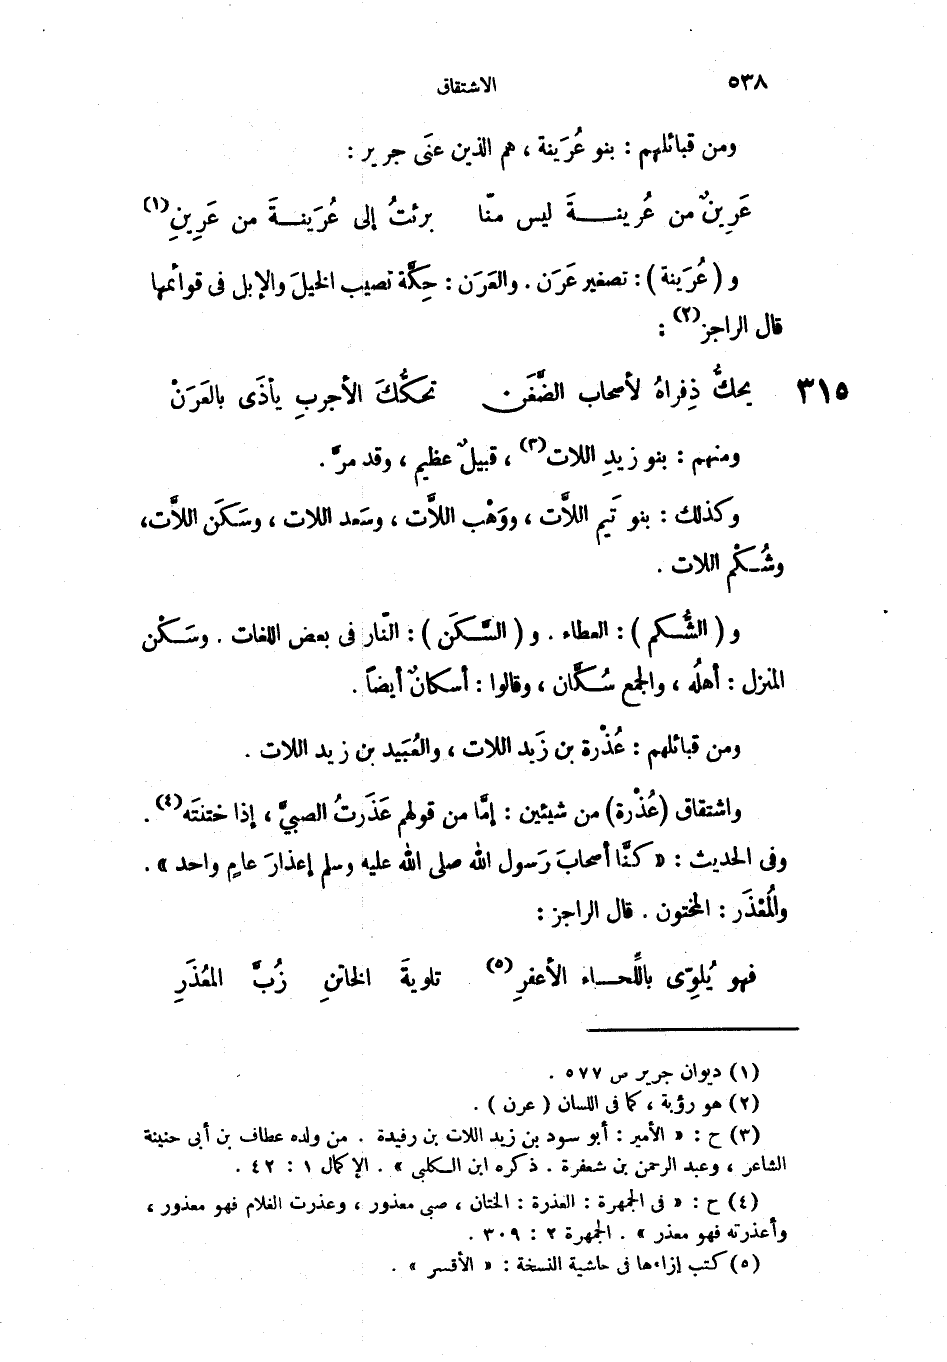 ٥٣٨
الاشتقاق
ومن قبائلهم : بنو عُرَينة ، هم الذين عنَى جرير :
عَرِينٌ من عُرينـــةَ ليس منّا برئتُ إلى عُرَينـــةَ من عَرِينِ(١)
و ( عُرَينة ) : تصغير عَرَن . والعَرَن : حِكَّة تصيب الخيلَ والإبل فى قوائمها
قال الراجز(٢) :
٣١٥ يحكُّ ذِفراهُ لأصحاب الضَّغَن تحكُّكَ الأجربِ يأذَى بالعَرَنْ
ومنهم : بنو زيدِ اللات(٣) ، قبيلٌ عظيم ، وقد مرَّ .
وكذلك : بنو تَيم اللاَّت ، ووَهْب اللاَّت ، وسَعد اللات ، وسَكَن اللاَّت،
وشُكْم اللات .
و ( الشُّكم ) : العطاء . و ( السَّكَن ) : النّار فى بعض اللغات . وسَكْن
المنزل : أهلُه ، والجمع سُكَّان ، وقالوا : أسكانٌ أيضاً .
ومن قبائلهم : عُذْرة بن زَيد اللات ، والعُبَيد بن زيد اللات .
واشتقاق (عُذْرة) من شيئين : إمَّا من قولهم عَذَرتُ الصبيَّ ، إذا ختنتَه(٤) .
وفى الحديث : « كنَّا أصحابَ رَسول الله صلى الله عليه وسلم إعذارَ عامٍ واحد » .
والمُعْذَر : المختون . قال الراجز :
فهو يُلوِّى باللِّحـــاء الأعفرِ(٥) تلويةَ الخاتنِ زُبَّ المعُذَرِ
(١) ديوان جرير ص ٥٧٧ .
(٢) هو رؤبة ، كما فى اللسان ( عرن ) .
(٣) ح : « الأمير : أبو سود بن زيد اللات بن رفيدة . من ولده عطاف بن أبى حنينة
الشاعر ، وعبد الرحمن بن شعفرة . ذكره ابن الكلبى » . الإكمال ١ : ٤٢ .
(٤) ح : « فى الجمهرة : العذرة : الختان ، صبى معذور ، وعذرت الغلام فهو معذور ،
وأعذرته فهو معذر » . الجمهرة ٢ : ٣٠٩ .
(٥) كتب إزاءها فى حاشية النسخة : « الأقسر » .